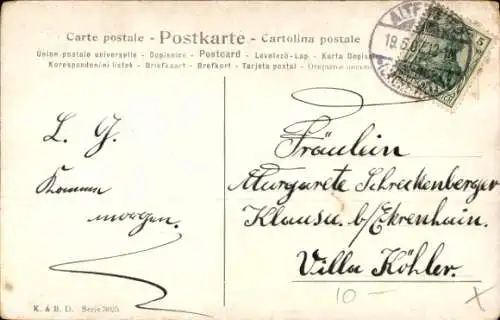 Carte postale - Postkarte - Cartolina postale
Union postale universelle - Dopisnice - Postcard - Levelező-Lap - Karta Dopis
Korespondenční lístek - Briefkaart - Brefkort - Tarjeta postal -
5
19.5.07
L. G.
Komme
morgen.
Fräulein
Margarete Schreckenberger
Klausa b/Ehrenhain.
Villa Köhler.
10 -
K. & B. D. Serie 3025